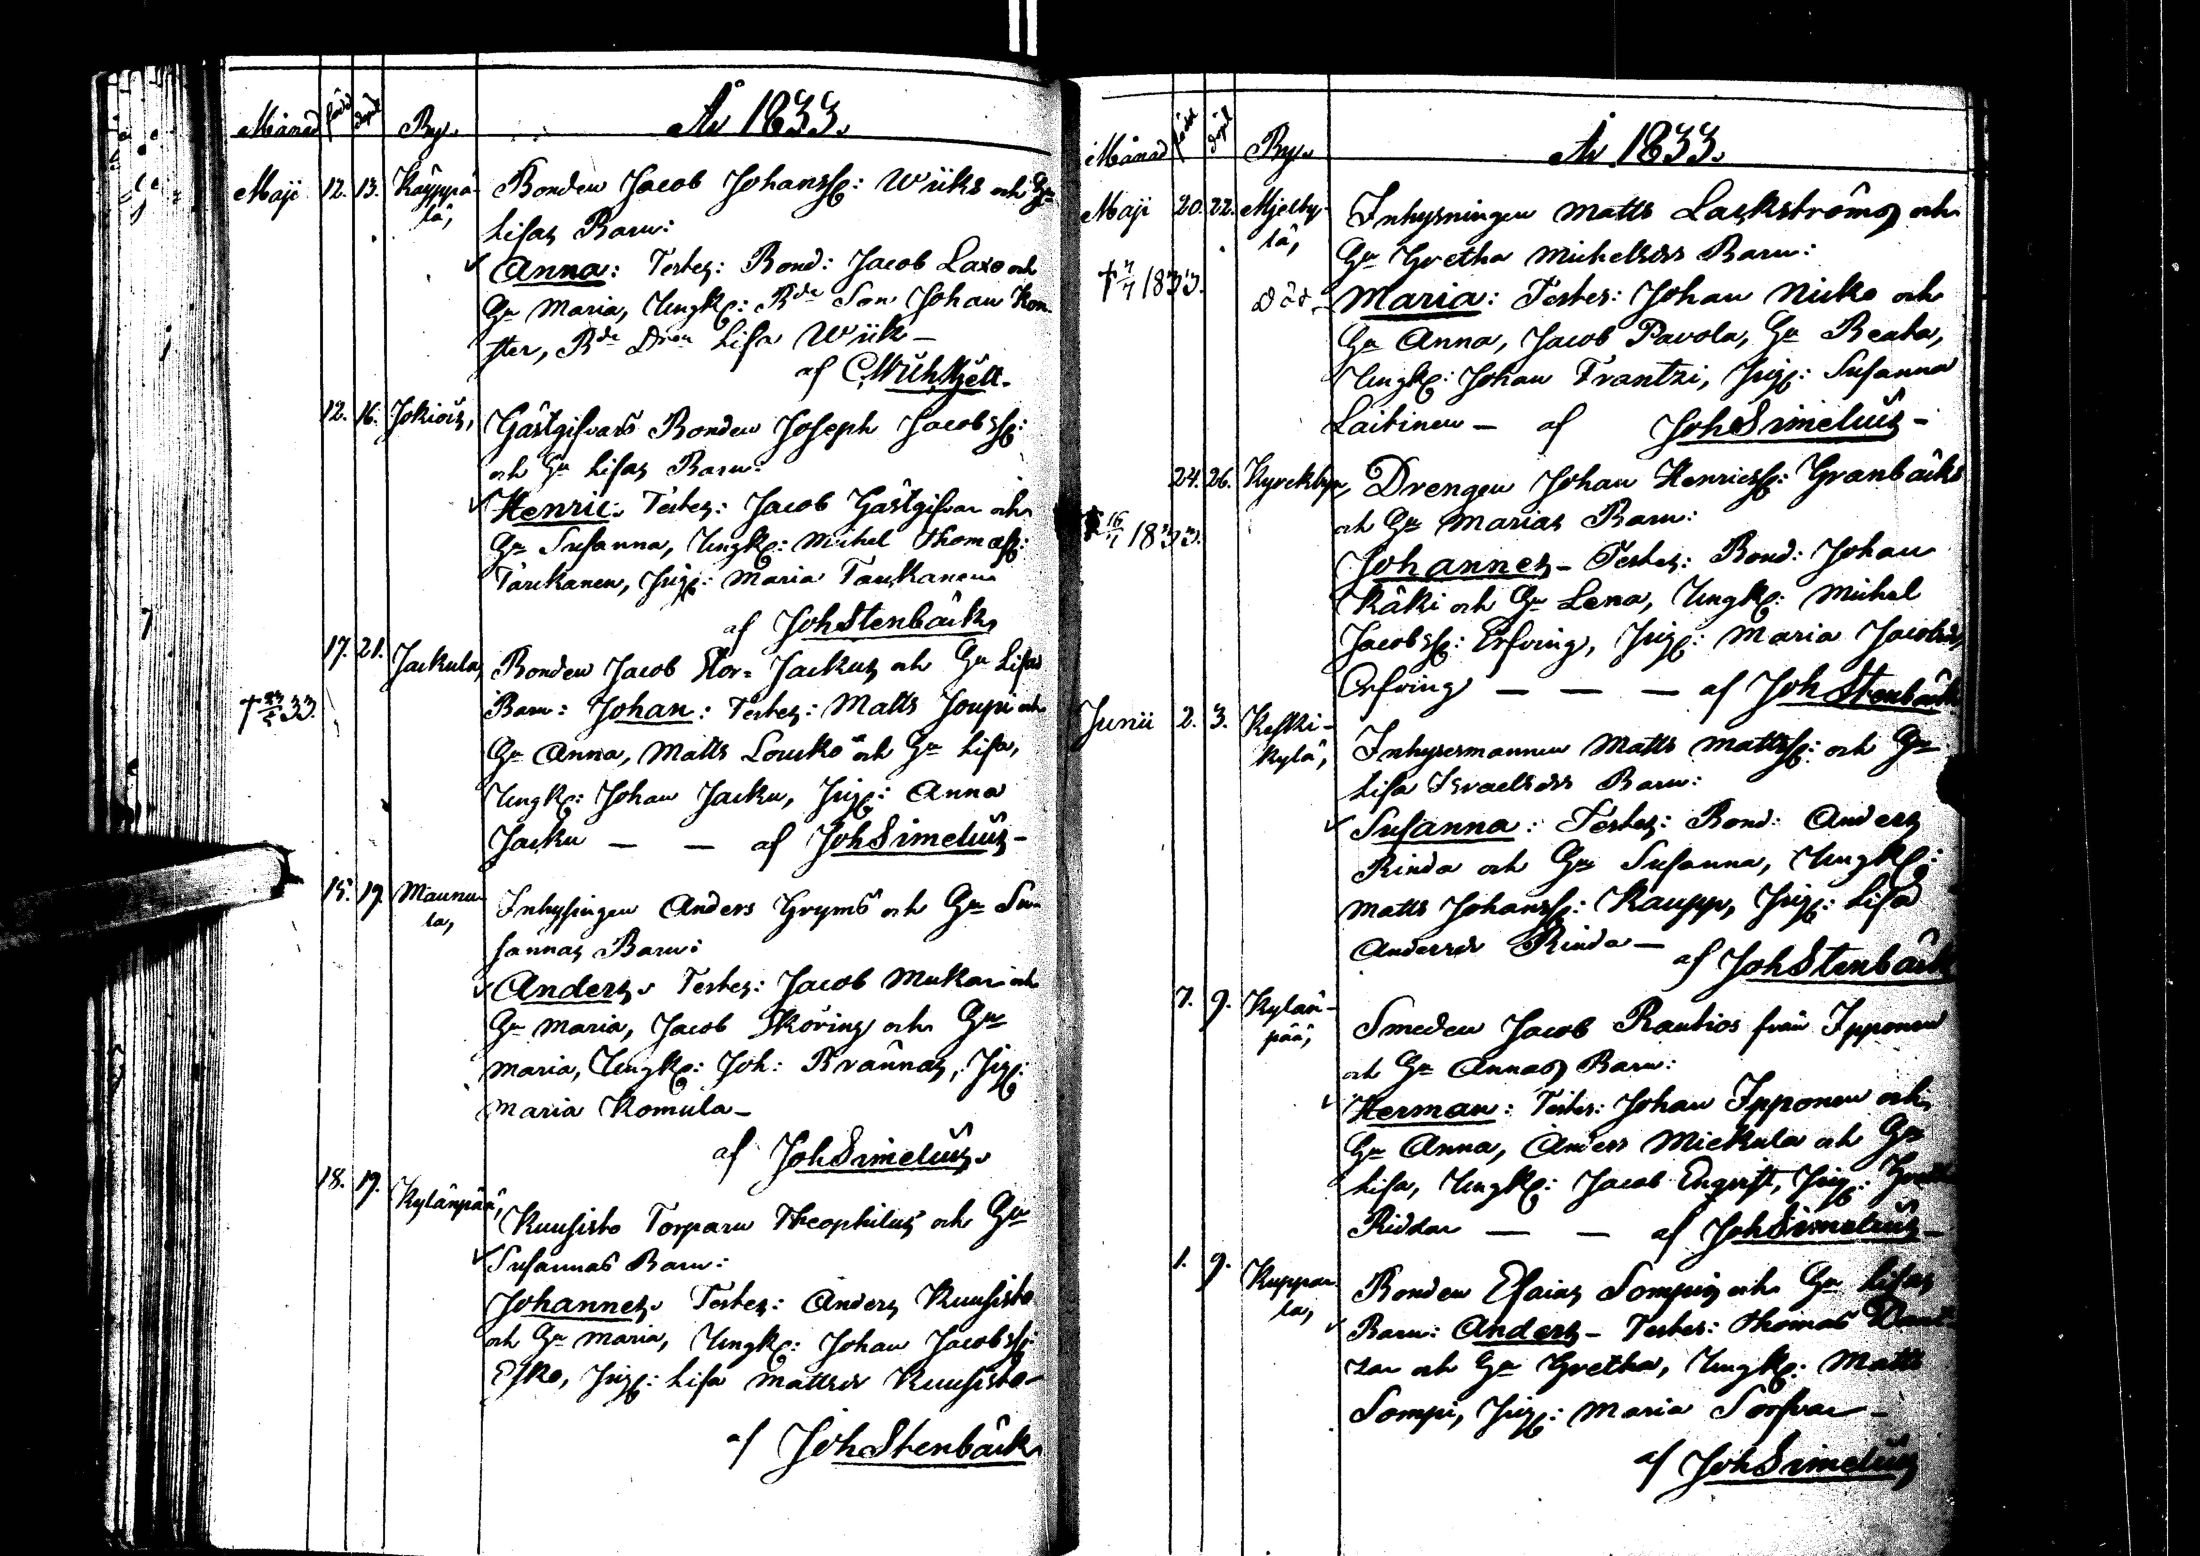 Månad född döpt By. År 1833.
Maji 12. 13. Käyppä- Bonden Jacob Johanss: Wiiks och Hu
lä, Lisas Barn:
Anna: Testes: Bond: Jacob Laxo och
Hu Maria, Ungk: Bde Son Johan Kon-
ster, Bde Dren Lisa Wiik –
af C. Wichkjell.
12. 16. Jokiois, Gästgifvars Bonden Joseph Jacobss:
och Hu Lisas Barn:
Henric. Testes: Jacob Gästgifvar och
Hu Susanna, Ungk: Michel Thomass:
Tarckanen, Jig: Maria Tarckanen
af Joh Stenbäck,
17. 21. Jackula, Bonden Jacob Stor- Jackus och Hu Lisas
† 33. Barn: Johan: Testes: Matts Joupi och
Hu Anna, Matts Lousko och Hu Lisa,
Ungk: Johan Jacku, Jig: Anna
Jacku – – af Joh Simelius –
15. 19. Maunu- Inhysingen Anders Gryms och Hu Su-
la, sannas Barn:
Anders. Testes: Jacob Mukari och
Hu Maria, Jacob Sköring och Hu
Maria, Ungk: Joh: Brännas, Jig:
Maria Komula –
af Joh Simelius.
18. 19. Kylänpää, Kuusisto Torparn Theophilus och Hu
Susannas Barn:
Johannes. Testes: Anders Kuusisto
och Hu Maria, Ungk: Johan Jacobss:
Esko, Jig: Lisa Mattsdr Kuusisto –
af Joh Stenbäck
Månad född döpt By. År 1833.
Maji 20. 22. Mjelby- Inhysningen Matts Lackströms och
lä, Hu Gretha Michelsdrs Barn:
† 1833. Död – Maria: Testes: Johan Nicko och
Hu Anna, Jacob Pavola, Hu Beata,
Ungk: Johan Frantzi, Jig: Susanna
Laitinen – af Joh Simelius –
24. 26. Kyrckbyn, Drengen Johan Henricss: Granbäcks
och Hu Marias Barn:
† 16/7 1833. Johannes – Testes: Bond: Johan
Käki och Hu Lena, Ungk: Michel
Jacobss: Erfving, Jig: Maria Jacobsdr,
Erfving – – – af Joh Stenbäck
Junii 2. 3. Keski- Inhysesmannen Matts Mattss: och Hu
kylä, Lisa Israelsdrs Barn:
Susanna: Testes: Bond: Anders
Rinda och Hu Susanna, Ungk:
Matts Johanss: Kaupp, Jig: Lisa
Andersdr Rinda – af Joh Stenbäck
7. 9. Kylän- Smeden Jacob Rautios från Ipponen
pää, och Hu Annas Barn:
Herman: Testes: Johan Ipponen och
Hu Anna, Anders Mickula och Hu
Lisa, Ungk: Jacob Engvist, Jig:
Riddar – – af Joh Simelius –
1. 9. Kuppar- Bonden Esaias Sompis och Hu Lisas
la, Barn: Anders – Testes: Thomas
och Hu Gretha, Ungk: Matts
Sompi, Jig: Maria Sorfvar –
af Joh Simelius